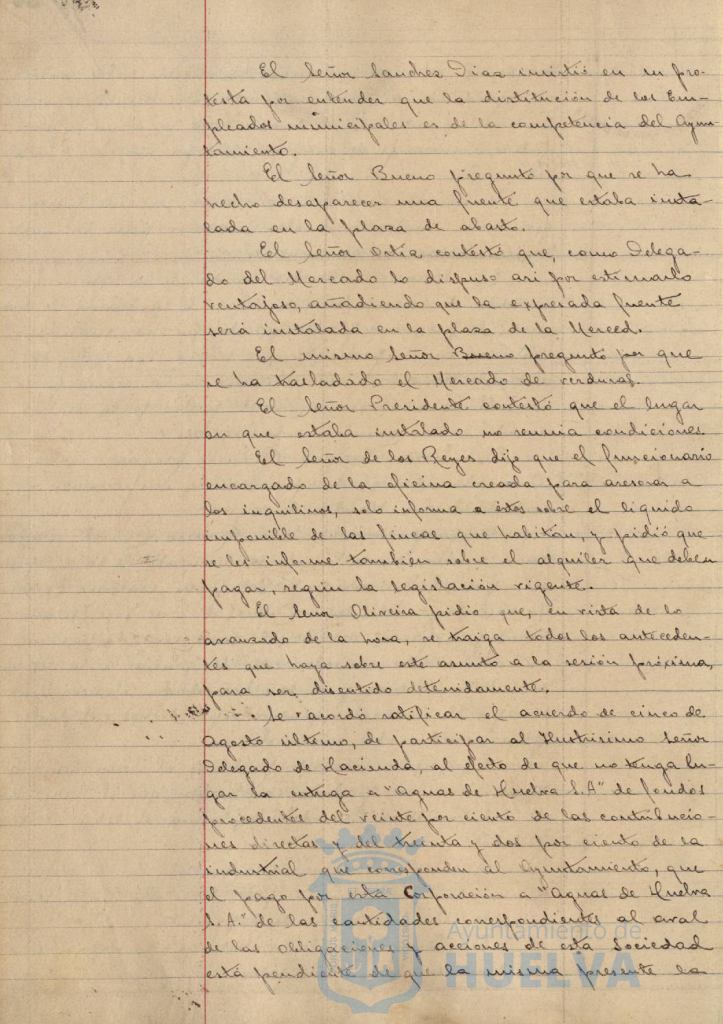 El Señor Sanchez Diaz insistió en su pro-
testa por entender que la distitución de los Em-
pleados municipales es de la competencia del Ayun-
tamiento.
El Señor Bueno preguntó por que se ha
hecho desaparecer una fuente que estaba insta-
lada en la plaza de abasto.
El Señor Ostia contestó que, como Delega-
do del Mercado lo dispuso asi por estimarlo
ventajoso, añadiendo que la expresada fuente
será instalada en la plaza de la Merced.
El mismo Señor Bueno preguntó por que
se ha trasladado el Mercado de verduras.
El Señor Presidente contestó que el lugar
en que estaba instalado no reunia condiciones.
El Señor de los Reyes dijo que el funcionario
encargado de la oficina creada para asesorar a
los inquilinos, solo informa a éstos sobre el liquido
imponible de las fincas que habitan, y pidió que
se les informe también sobre el alquiler que deben
pagar, según la legislación vigente.
El Señor Oliveira pidio que, en vista de lo
avanzado de la hora, se traiga todos los anteceden-
tes que haya sobre este asunto a la sesión próxima,
para ser discutido detenidamente.
Se acordó ratificar el acuerdo de cinco de
Agosto último, de participar al Ilustrisimo Señor
Delegado de Hacienda, al efecto de que no tenga lu-
gar la entrega a "Aguas de Huelva S.A" de fondos
procedentes del veinte por ciento de las contribucio-
nes directas y del treinta y dos por ciento de la
industrial que corresponden al Ayuntamiento, que
el pago por esta Corporación a "Aguas de Huelva
S.A." de las cantidades correspondientes al aval
de las obligaciones y acciones de esta Sociedad
está pendiente de que la misma presente la
Ayuntamiento de
HUELVA